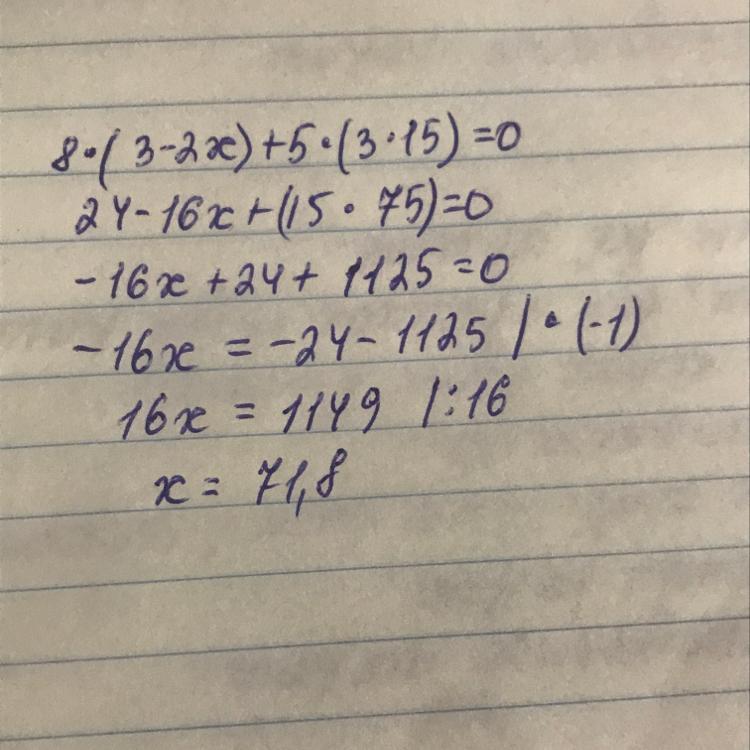 8·(3-2x)+5·(3·15)=0
24-16x+(15·75)=0
-16x+24+1125=0
-16x=-24-1125 |·(-1)
16x=1149 |:16
x=71,8